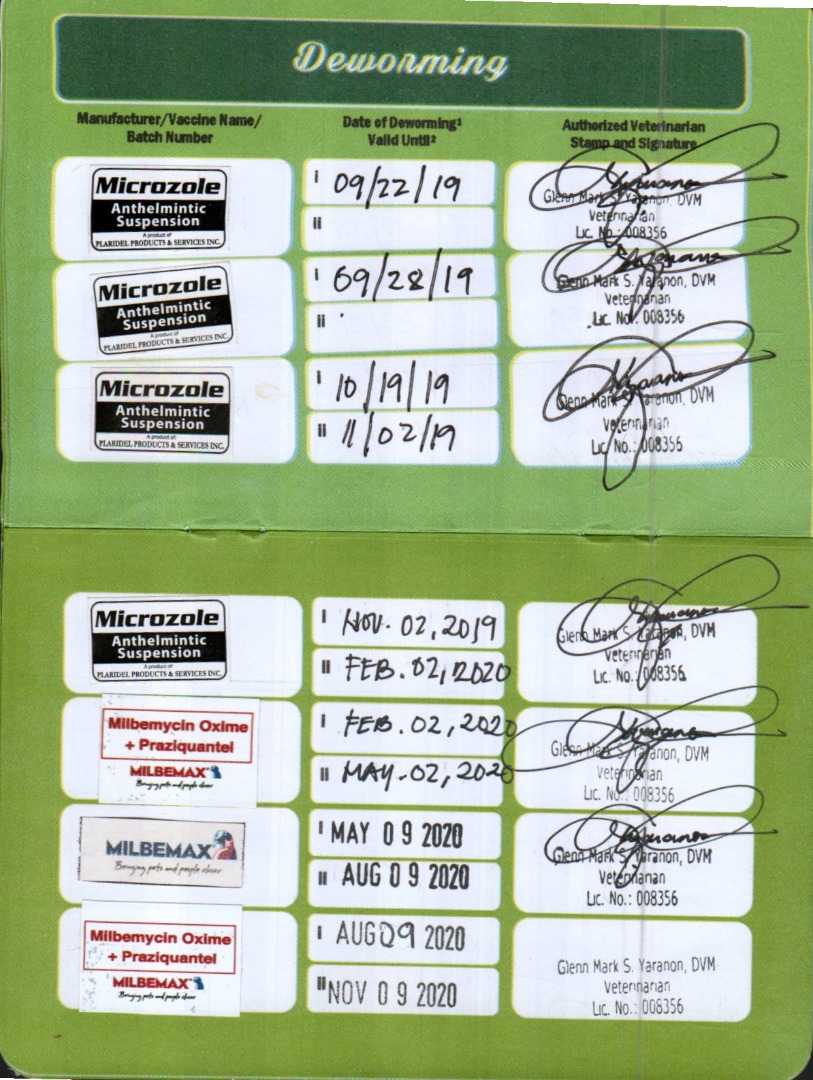 Deworming
Manufacturer/Vaccine Name/
Batch Number
Date of Deworming¹
Valid Until²
Authorized Veterinarian
Stamp and Signature
Microzole
Anthelmintic
Suspension
A product of
PLARIDEL PRODUCTS & SERVICES INC.
i 09/22/19
ii
Glenn Mark S. Yaranon, DVM
Veterinarian
Lic. No.: 008356
Microzole
Anthelmintic
Suspension
A product of
PLARIDEL PRODUCTS & SERVICES INC.
i 09/28/19
ii
Glenn Mark S. Yaranon, DVM
Veterinarian
Lic. No.: 008356
Microzole
Anthelmintic
Suspension
A product of:
PLARIDEL PRODUCTS & SERVICES INC.
i 10/19/19
ii 11/02/19
Glenn Mark S. Yaranon, DVM
Veterinarian
Lic. No.: 008356
Microzole
Anthelmintic
Suspension
A product of
PLARIDEL PRODUCTS & SERVICES INC.
i NOV. 02, 2019
ii FEB. 02, 2020
Glenn Mark S. Yaranon, DVM
Veterinarian
Lic. No.: 008356
Milbemycin Oxime
+ Praziquantel
MILBEMAX
Bringing pets and people closer
i FEB. 02, 2020
ii MAY. 02, 2020
Glenn Mark S. Yaranon, DVM
Veterinarian
Lic. No.: 008356
MILBEMAX
Bringing pets and people closer
i MAY 09 2020
ii AUG 09 2020
Glenn Mark S. Yaranon, DVM
Veterinarian
Lic. No.: 008356
Milbemycin Oxime
+ Praziquantel
MILBEMAX
Bringing pets and people closer
i AUG 09 2020
ii NOV 09 2020
Glenn Mark S. Yaranon, DVM
Veterinarian
Lic. No.: 008356